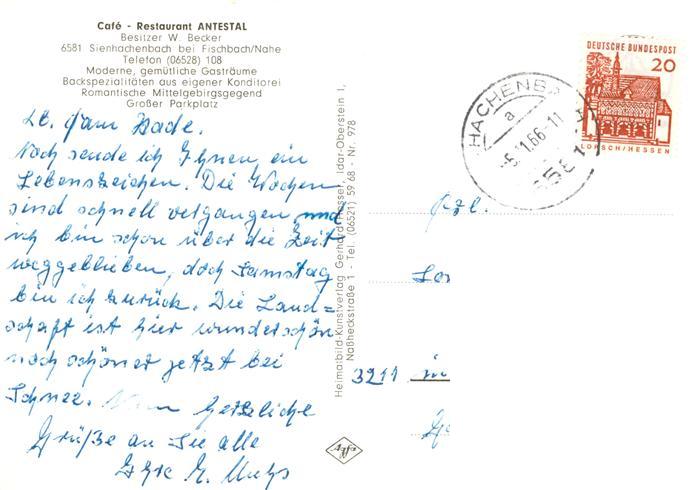 Café - Restaurant ANTESTAL
Besitzer W. Becker
6581 Sienhachenbach bei Fischbach/Nahe
Telefon (06528) 108
Moderne, gemütliche Gasträume
Backspezialitäten aus eigener Konditorei
Romantische Mittelgebirgsgegend
Großer Parkplatz
Lb. Fam
Noch sende ich Ihnen ein
Lebenszeichen. Die Wochen
sind schnell vergangen und
ich bin schon über die Zeit
weggeblieben, doch Samstag
bin ich zurück. Die Land=
schaft ist hier wunderschön
noch schöner jetzt bei
Schnee. Herzliche
Grüße an Sie alle
Ihre
Heimatbild-Kunstverlag Gerhard Messer, Idar-Oberstein 1,
Naßheckstraße 1 - Tel. (06521) 59 68 - Nr. 978
DEUTSCHE BUNDESPOST
20
LORSCH/HESSEN
HACHENB CH
a
-5.11.66-11
Fzl.
3211 in